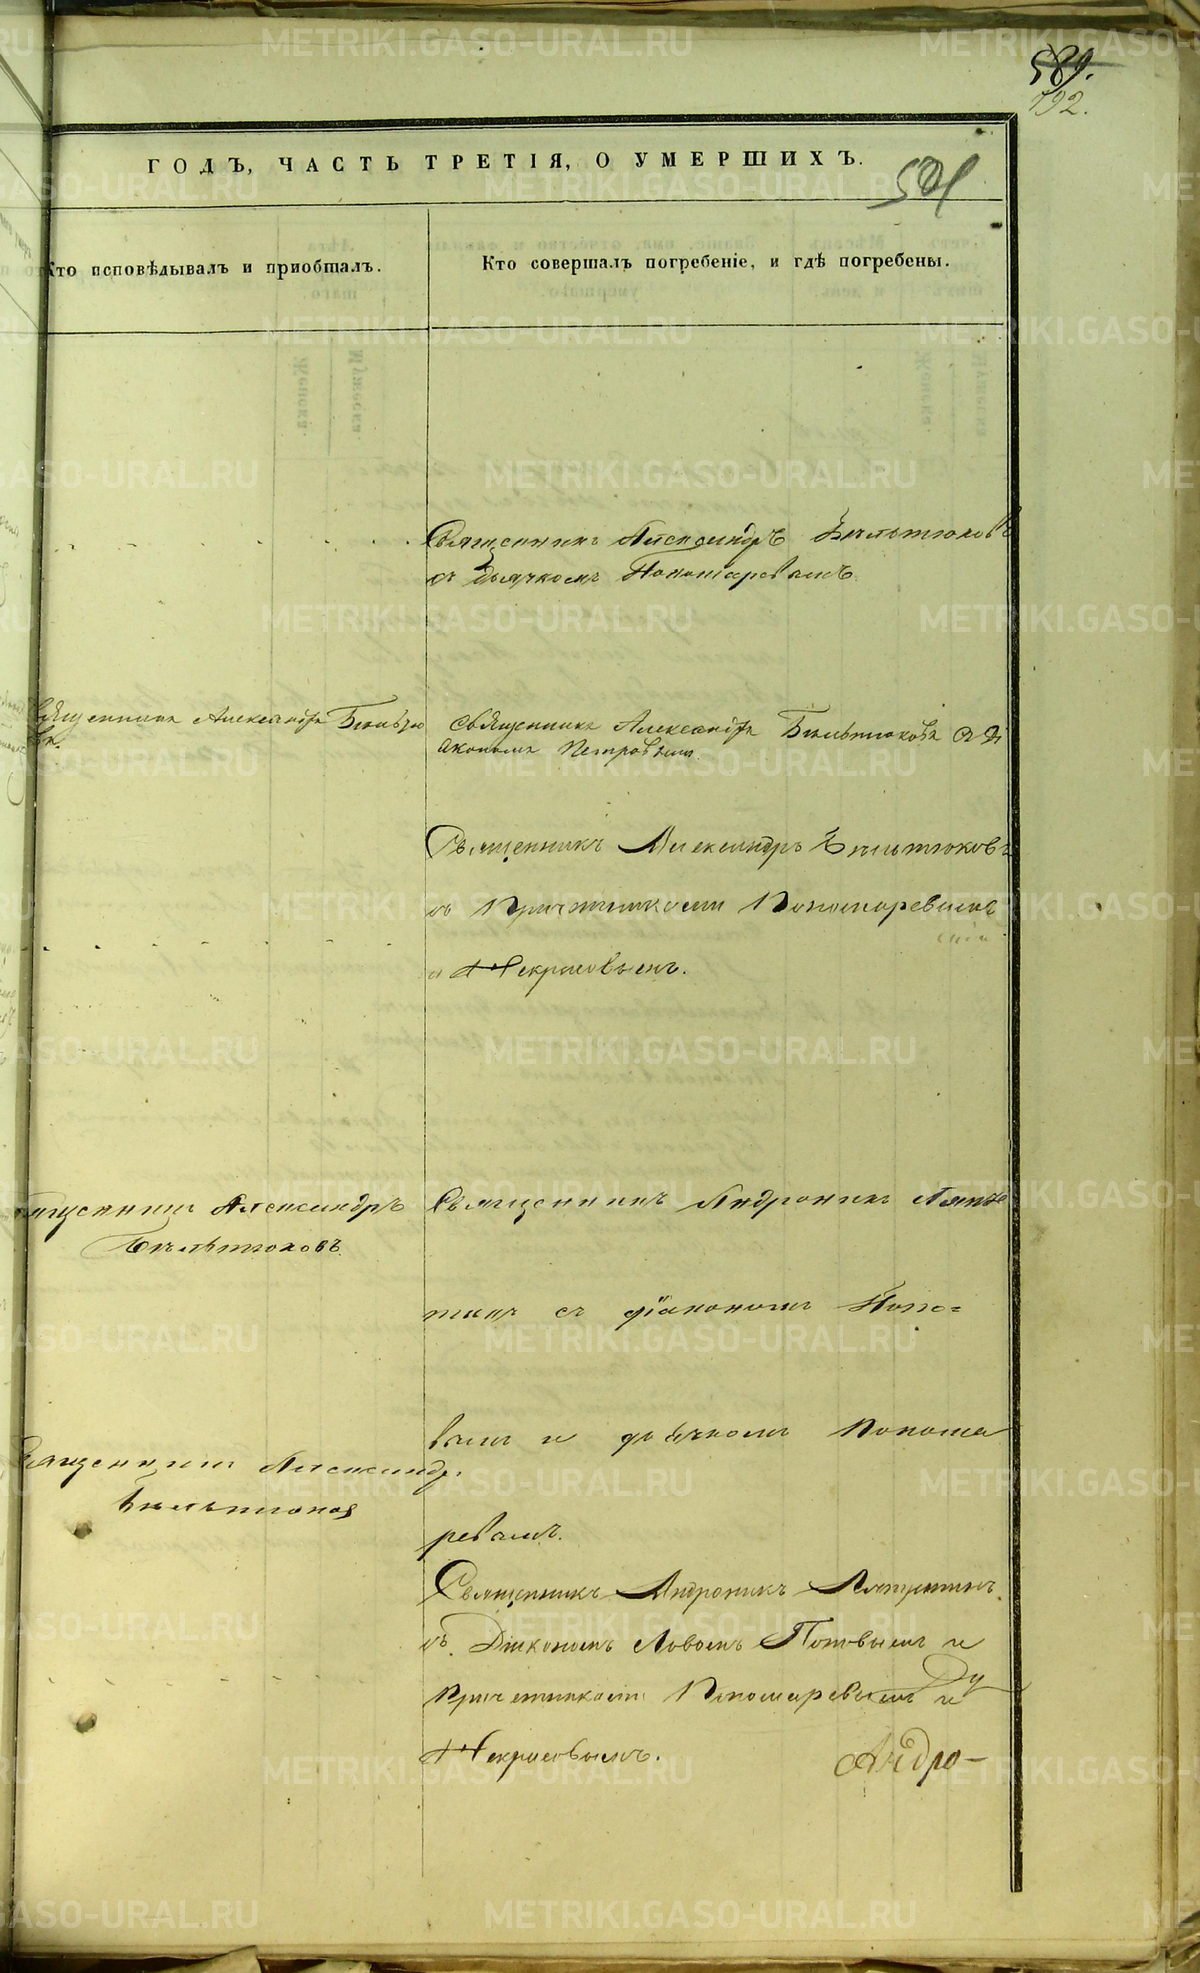 589.
192.
ГОДЪ, ЧАСТЬ ТРЕТІЯ, О УМЕРШИХЪ.
501
Кто исповѣдывалъ и пріобщалъ.
Кто совершалъ погребеніе, и гдѣ погребены.
Священникъ Александръ Бѣльтюковъ
съ дьячкомъ Пономаревымъ.
Священникъ Александръ Бѣльтю
въ.
Священникъ Александръ Бѣльтюковъ съ Ді
акономъ Петровымъ.
Священникъ Александръ Бѣльтюковъ
съ Причетниками Пономаревымъ
и Некрасовымъ.
Священникъ Александръ
Бѣльтюковъ.
Священникъ Андроникъ Ляпу
съ діакономъ Попо=
вымъ и дьячкомъ Понома
ревымъ.
Священникъ Александръ
Бѣльтюковъ
Священникъ Андроникъ
съ Діакономъ Поповымъ и
Причетниками Пономаревымъ и
Некрасовымъ.
Андро-
METRIKI.GASO-URAL.RU